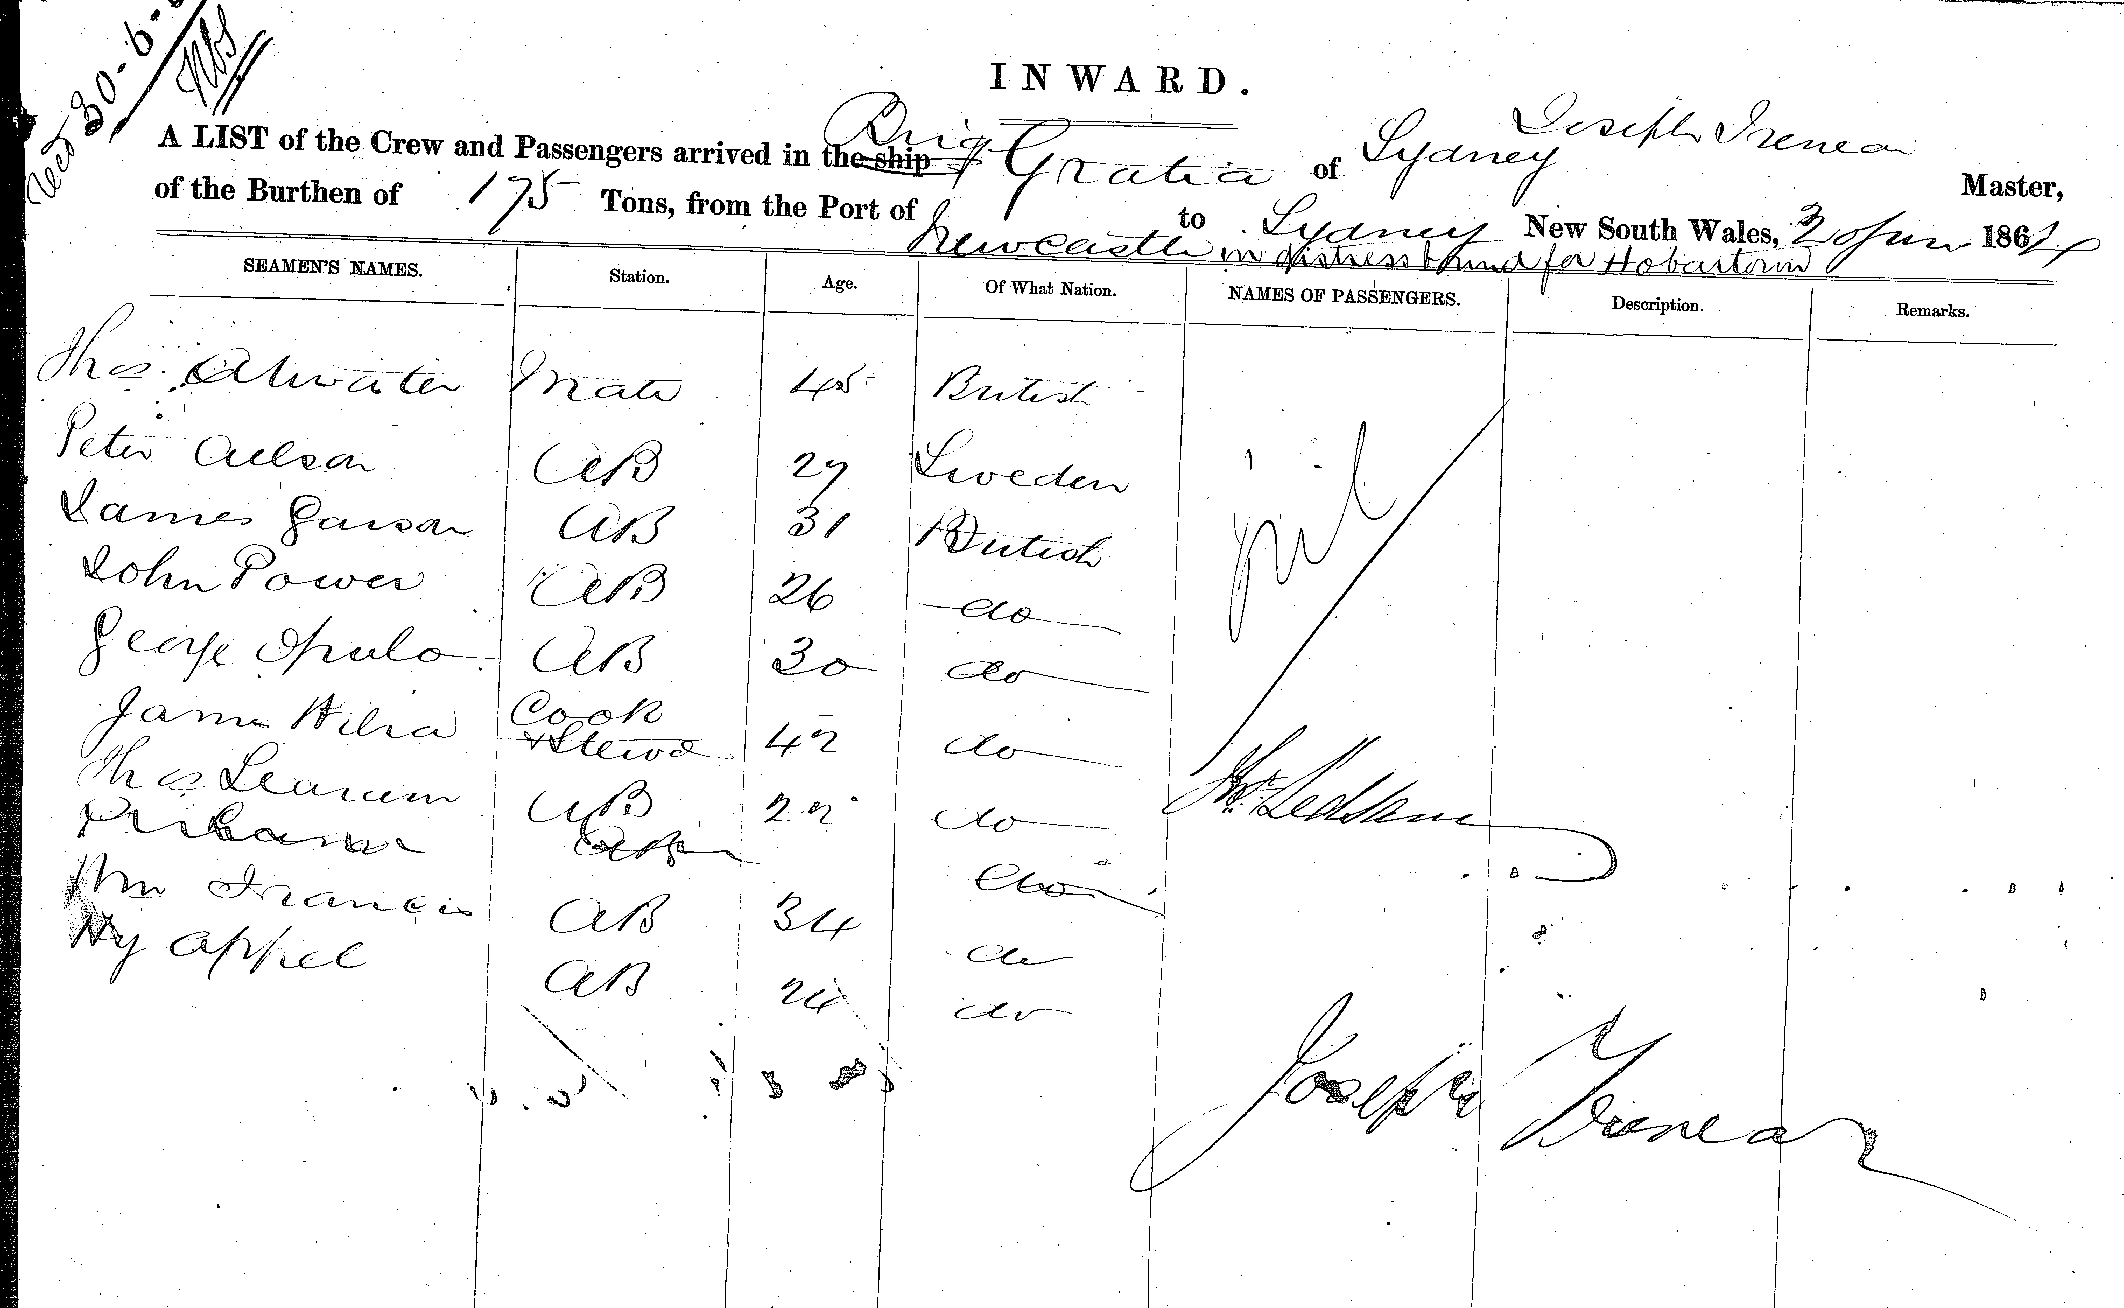 30-6-
INWARD.
A LIST of the Crew and Passengers arrived in the ship Brig Gratia of Sydney Joseph Irenea Master,
of the Burthen of 175 Tons, from the Port of Newcastle to Sydney New South Wales, Jun 1864
in distress bound for Hobartown
SEAMEN'S NAMES. Station. Age. Of What Nation. NAMES OF PASSENGERS. Description. Remarks.
Thos Atwater Mate 45 British
Peter AB 27 Sweden
James AB 31 British nil
John Power AB 26 do
George AB 30 do
James Cook & Stewd 42 do
Thos AB 22 do
do
Wm Francis AB 34 do
Hy Appel AB 24 do
Joseph Irenea